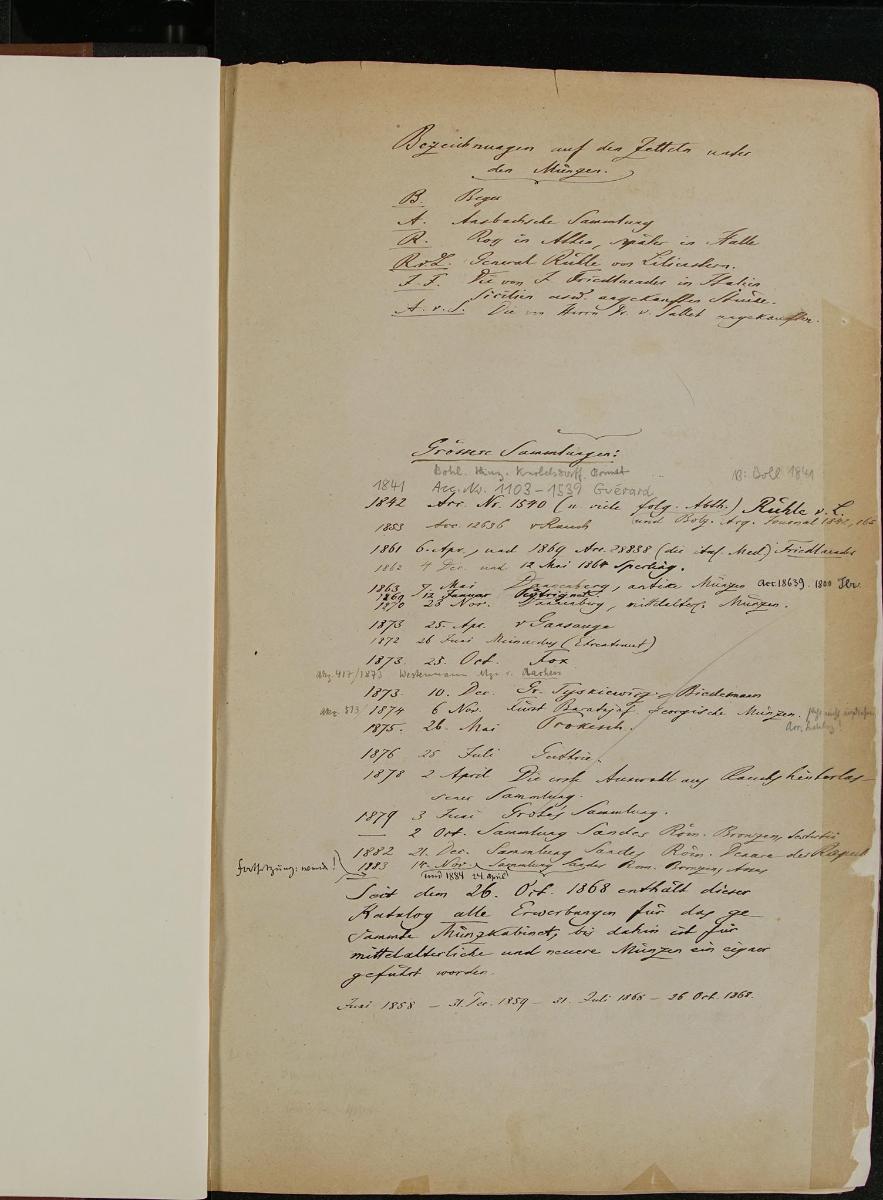 Bezeichnungen auf den Zetteln unter
den Münzen.
B. Beger
A. Ansbachsche Sammlung
R. Ross in Athen, später in Halle
R.v.L. General Rühle von Lilienstern.
J. F. Die von J. Friedlaender in Italien
Sicilien usw. angekauften Stücke.
A. v. S. Die von Herrn Dr. v. Sallet angekauften.
Grössere Sammlungen:
Bohl.
B: Boll 1841
1841 Acc. No. 1103-1539 Guérard
1842 Acc. Nr. 1540 (u. viele folg. Abth.) Rühle v. L.
und Bolz. Arg. Journal 1842,
1853 Acc. 12636 v Rauch
1861 6. Apr., und 1869 Acc. 28838 (die Ital. Med.) Friedlaender
1862 4 Dec. und 12 Mai 1864 Sperling.
1863 7. Mai Dannenberg, antike Münzen acc. 18639. 1800 Thr.
12 Januar
1870 23 Nov. Dannenberg, mittelalter. Münzen.
1873 25. Apr. v Gansauge
1872 26 Juni Meinardus (Ehrentraut)
1873. 25. Oct. Fox
417/1873 Westermann Aachen
1873. 10. Dec. Gr. Tyskiewicz. Biedermann
1874 6 Nov. Fürst Baratajef. georgische Münzen.
1875. 26. Mai Prokesch.
1876 25 Juli Guthrie.
1878 2 April Die erste Auswahl aus Rauchs hinterlas-
sener Sammlung.
1879 3 Juni Grote's Sammlung.
— 2 Oct. Sammlung Sandes Röm. Bronzen,
1882 21. Dec. Sammlung Sandes Röm. Denare der Republ
Fortsetzung: 1883 14. Nov. Sammlung Sandes Röm. Bronzen,
(und 1884 24. April)
Seit dem 26. Oct. 1868 enthält dieser
Katalog alle Erwerbungen für das ge-
sammte Münzkabinet, bis dahin ist für
mittelalterliche und neuere Münzen ein eigner
geführt worden.
Juni 1858 — 31. Dec. 1859 — 31. Juli 1868 — 26 Oct. 1868.